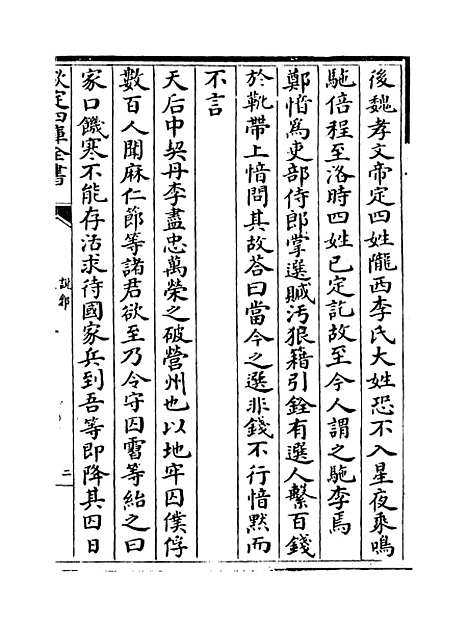 後魏孝文帝定四姓隴西李氏大姓恐不入星夜乘鳴
駞倍程至洛時四姓已定訖故至今人謂之駞李焉
鄭愔爲吏部侍郎掌選贓汚狼籍引銓有選人繫百錢
於靴帶上愔問其故答曰當今之選非錢不行愔黙而
不言
天后中契丹李盡忠萬榮之破營州也以地牢囚僕俘
數百人聞麻仁節等諸君欲至乃令守囚霫等紿之曰
家口饑寒不能存活求待國家兵到吾等即降其囚日
欽定四庫全書
說郛
二